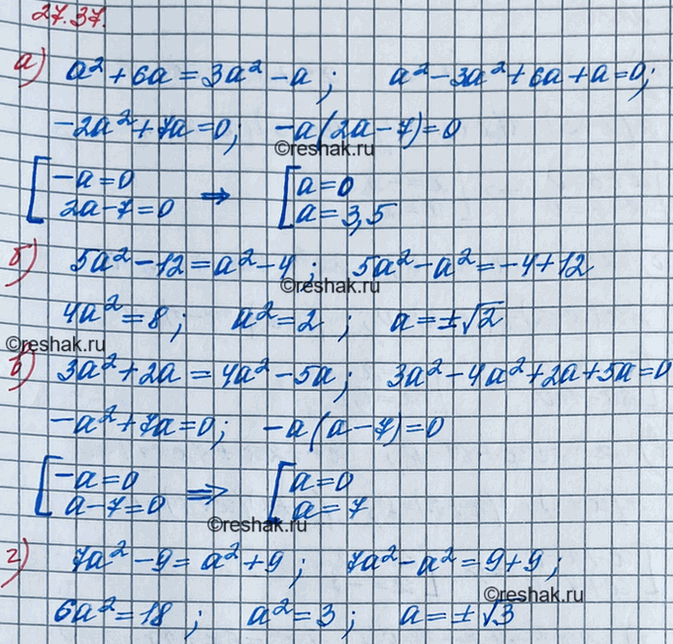 27.37.
а) a² + 6a = 3a² - a; a² - 3a² + 6a + a = 0;
-2a² + 7a = 0; -a(2a - 7) = 0
©reshak.ru
[ -a = 0 ⇒ [ a = 0
2a - 7 = 0 a = 3,5
б) 5a² - 12 = a² - 4; 5a² - a² = -4 + 12
©reshak.ru
4a² = 8; a² = 2; a = ±√2
©reshak.ru
в) 3a² + 2a = 4a² - 5a; 3a² - 4a² + 2a + 5a = 0
-a² + 7a = 0; -a(a - 7) = 0
[ -a = 0 ⇒ [ a = 0
a - 7 = 0 a = 7
©reshak.ru
г) 7a² - 9 = a² + 9; 7a² - a² = 9 + 9;
©reshak.ru
6a² = 18; a² = 3; a = ±√3